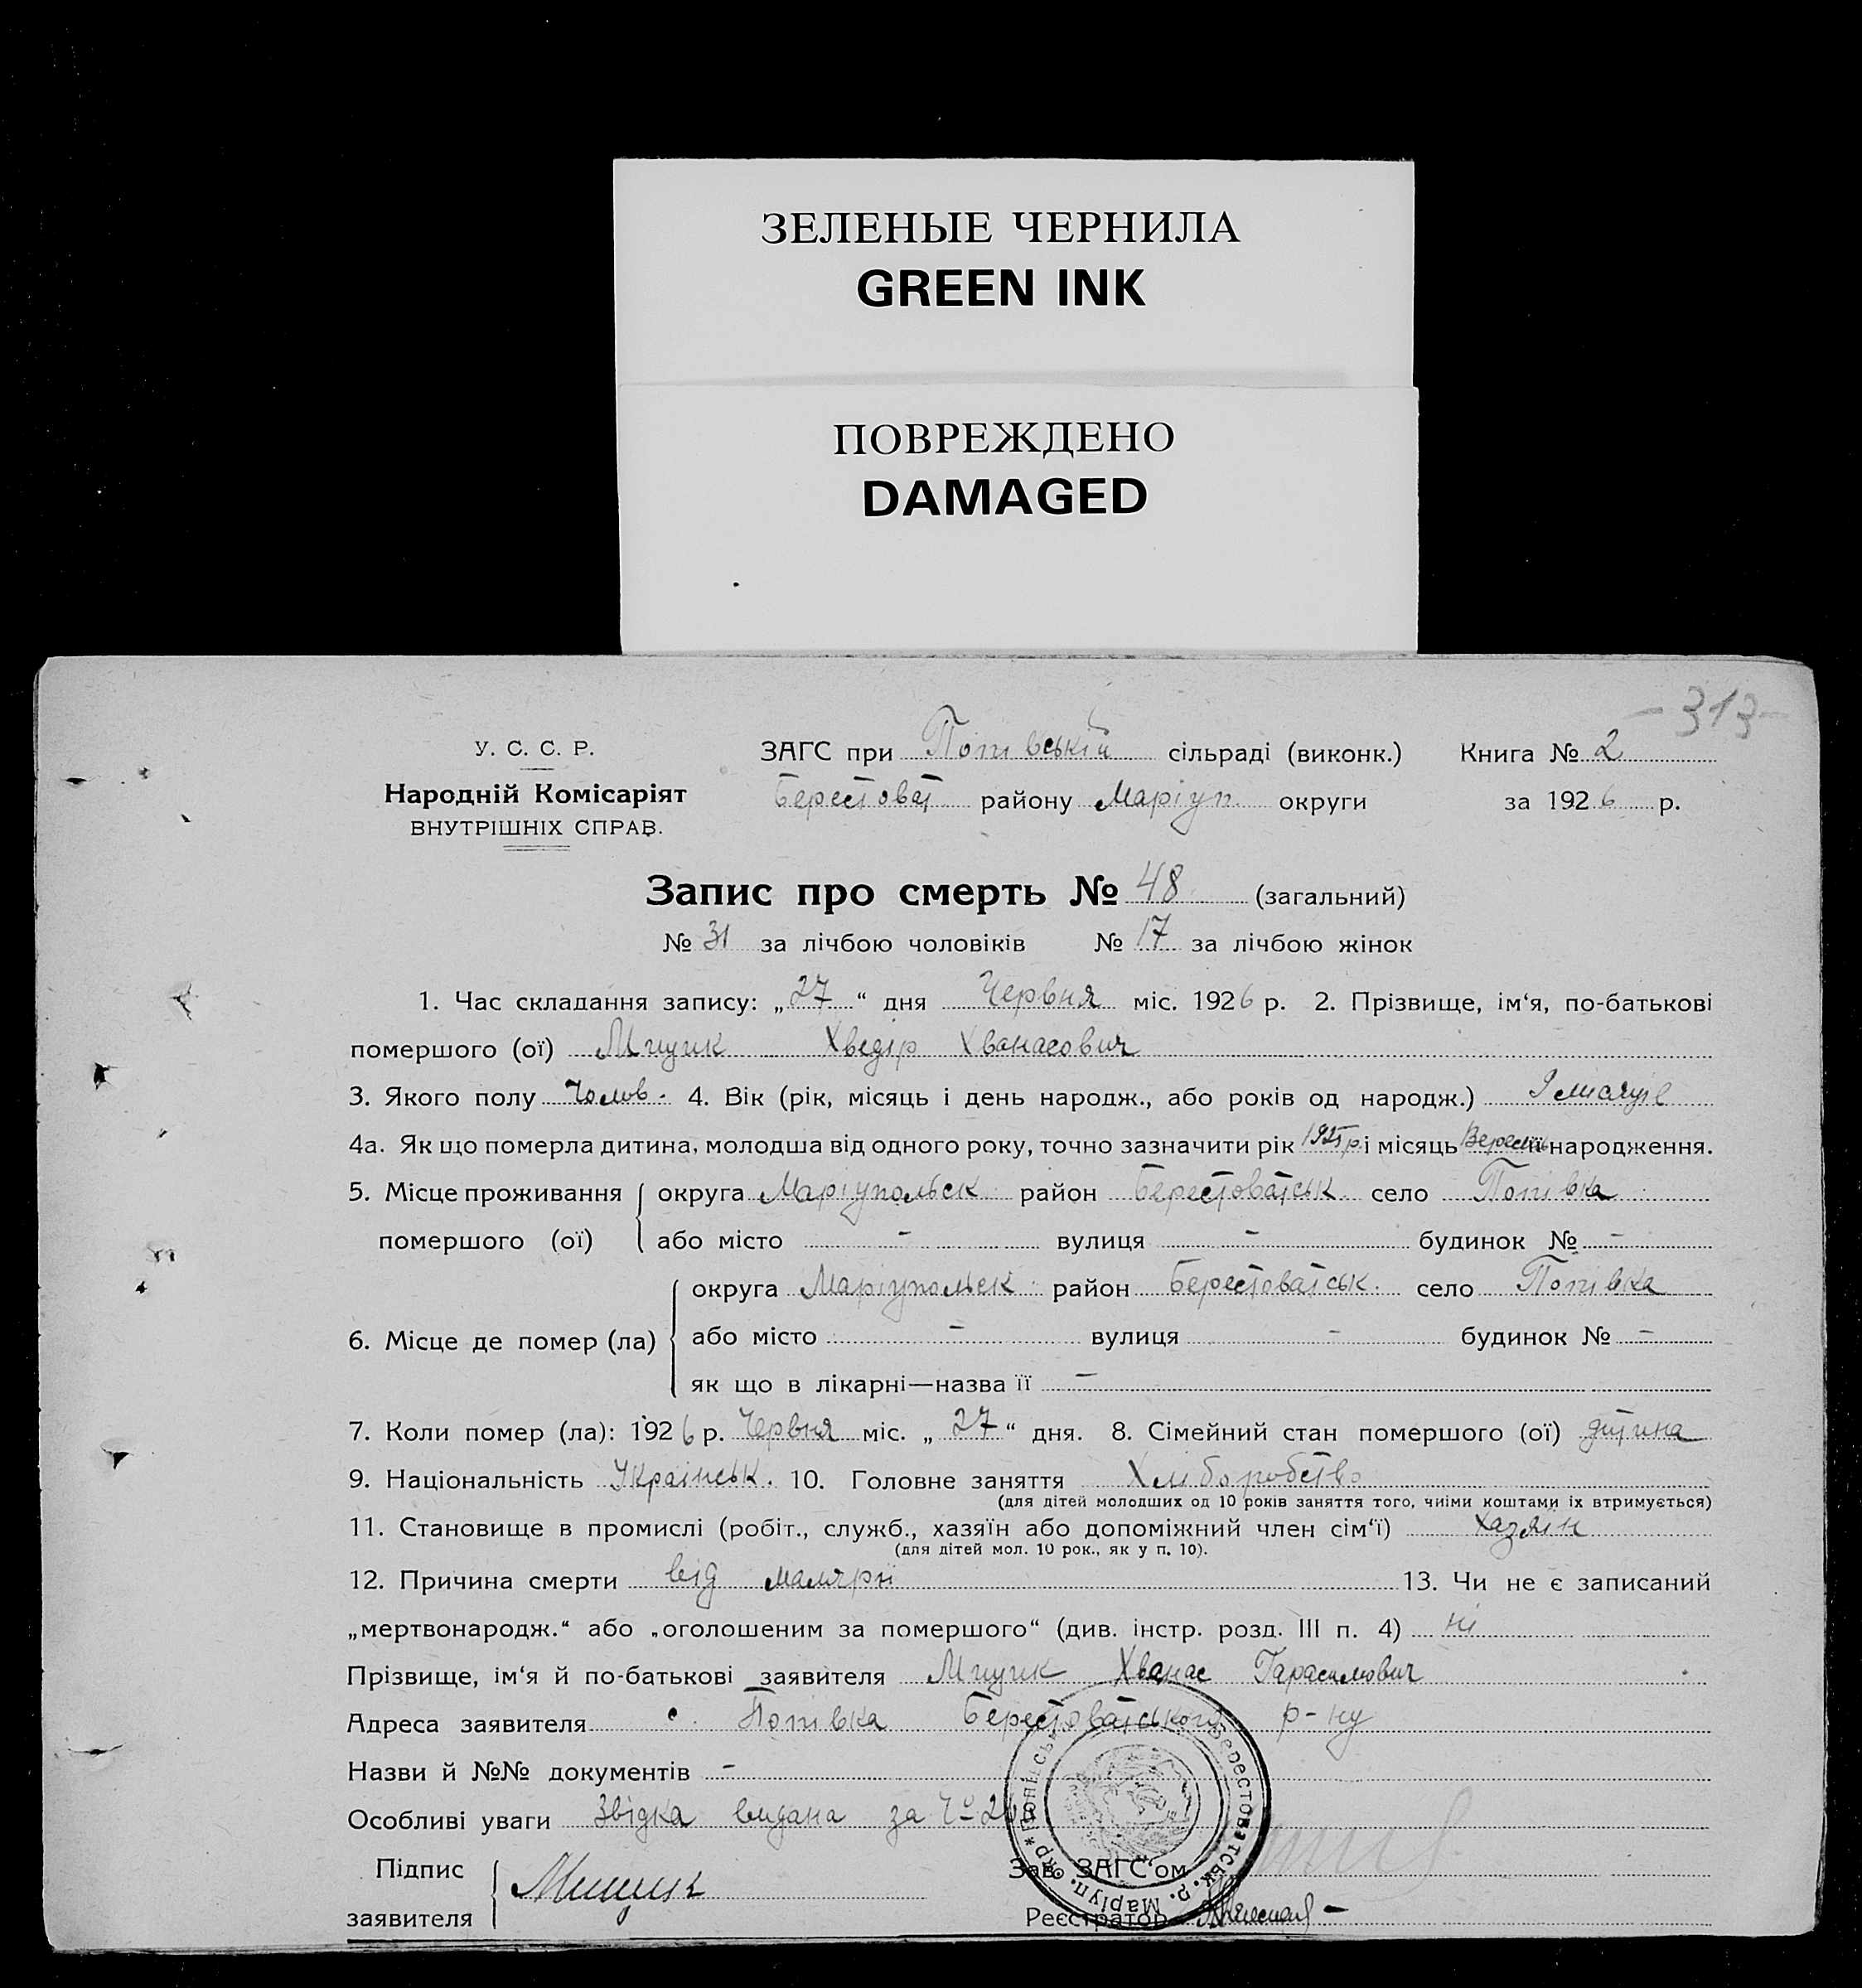 ЗЕЛЕНЫЕ ЧЕРНИЛА
GREEN INK
ПОВРЕЖДЕНО
DAMAGED
- 313 -
У. С. С. Р. ЗАГС при Попівській сільраді (виконк.) Книга № 2
Народній Комісаріят Берестоват району Маріуп. округи за 1926 р.
ВНУТРІШНІХ СПРАВ.
Запис про смерть № 48 (загальний)
№ 31 за лічбою чоловіків № 17 за лічбою жінок
1. Час складання запису: „27“ дня Червня міс. 1926 р. 2. Прізвище, ім‘я, по-батькові
помершого (ої) Мищик Хведір Хванасович
3. Якого полу Чолов. 4. Вік (рік, місяць і день народж., або років од народж.) 9 місяців
4а. Як що померла дитина, молодша від одного року, точно зазначити рік 1925 р. і місяць Вересень її народження.
5. Місце проживання округа Маріупольск район Берестоватськ село Попівка
помершого (ої) або місто - вулиця - будинок № -
округа Маріупольск район Берестоватськ. село Попівка
6. Місце де помер (ла) або місто - вулиця - будинок № -
як що в лікарні—назва її -
7. Коли помер (ла): 1926 р. Червня міс. „27“ дня. 8. Сімейний стан помершого (ої) дитина
9. Національність Українськ. 10. Головне заняття Хліборобство
(для дітей молодших од 10 років заняття того, чиїми коштами їх втримується)
11. Становище в промислі (робіт., служб., хазяїн або допоміжний член сім‘ї) Хазяін
(для дітей мол. 10 рок., як у п. 10).
12. Причина смерти від малярії 13. Чи не є записаний
„мертвонародж.“ або „оголошеним за помершого“ (див. інстр. розд. III п. 4) ні
Прізвище, ім‘я й по-батькові заявителя Мищик Хванас Гарасимович
Адреса заявителя с. Попівка Берестоватського р-ну
Назви й №№ документів -
Особливі уваги Звідка видана за
Підпис Мищик Зав. ЗАГС‘ом
заявителя Реєстратор
Берестоватськ. р. Маріуп. окр *